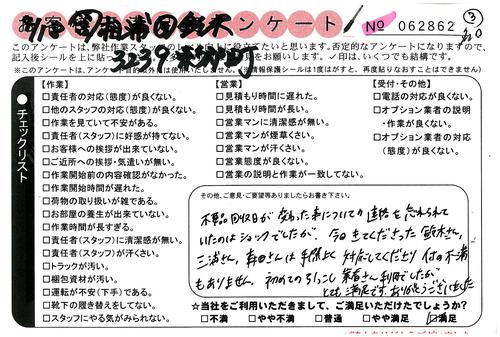 アンケート
No 062862
③
このアンケートは、弊社作業スタッフの
記入後シールを上に貼っ
✓印は、いくつでも結構です。
チェックリスト
【作業】
□責任者の対応(態度)が良くない。
□他のスタッフの対応(態度)が良くない。
□作業を見ていて不安がある。
□責任者(スタッフ)に好感が持てない。
□お客様への挨拶が出来ていない。
□ご近所への挨拶・気遣いが無い。
□作業開始前の内容確認がなかった。
□作業開始時間が遅れた。
□荷物の取り扱いが雑である。
□お部屋の養生が出来ていない。
□作業時間が長すぎる。
□責任者(スタッフ)に清潔感が無い。
□責任者(スタッフ)が汗くさい。
□トラックが汚い。
□梱包資材が汚い。
□運転が不安(下手)である。
□靴下の履き替えをしてない。
□スタッフにやる気がみられない。
【営業】
□見積もり時間に遅れた。
□見積もり時間が長い。
□営業マンに清潔感が無い。
□営業マンが煙草くさい。
□営業マンが汗くさい。
□営業態度が良くない。
□営業の説明が一致してない。
【受付・その他】
□電話の対応が良くない。
□オプション業者の説明
・作業が良くない。
□オプション業者の対応
(態度)が良くない。
その他、ご意見・ご要望等ありましたらお書き下さい。
不要品回収日が変わった事についてのご連絡を忘れられて
いたのはショックでしたが、今日きてくださった鈴木さん、
三浦さん、森田さんは手際よく対応してくださり何の不満
もありません。初めての引っこし業者さん利用でしたが
とても満足です。ありがとうございました
☆当社をご利用いただきまして、ご満足いただけたでしょうか?
□不満 □やや不満 □普通 □やや満足 ☑満足